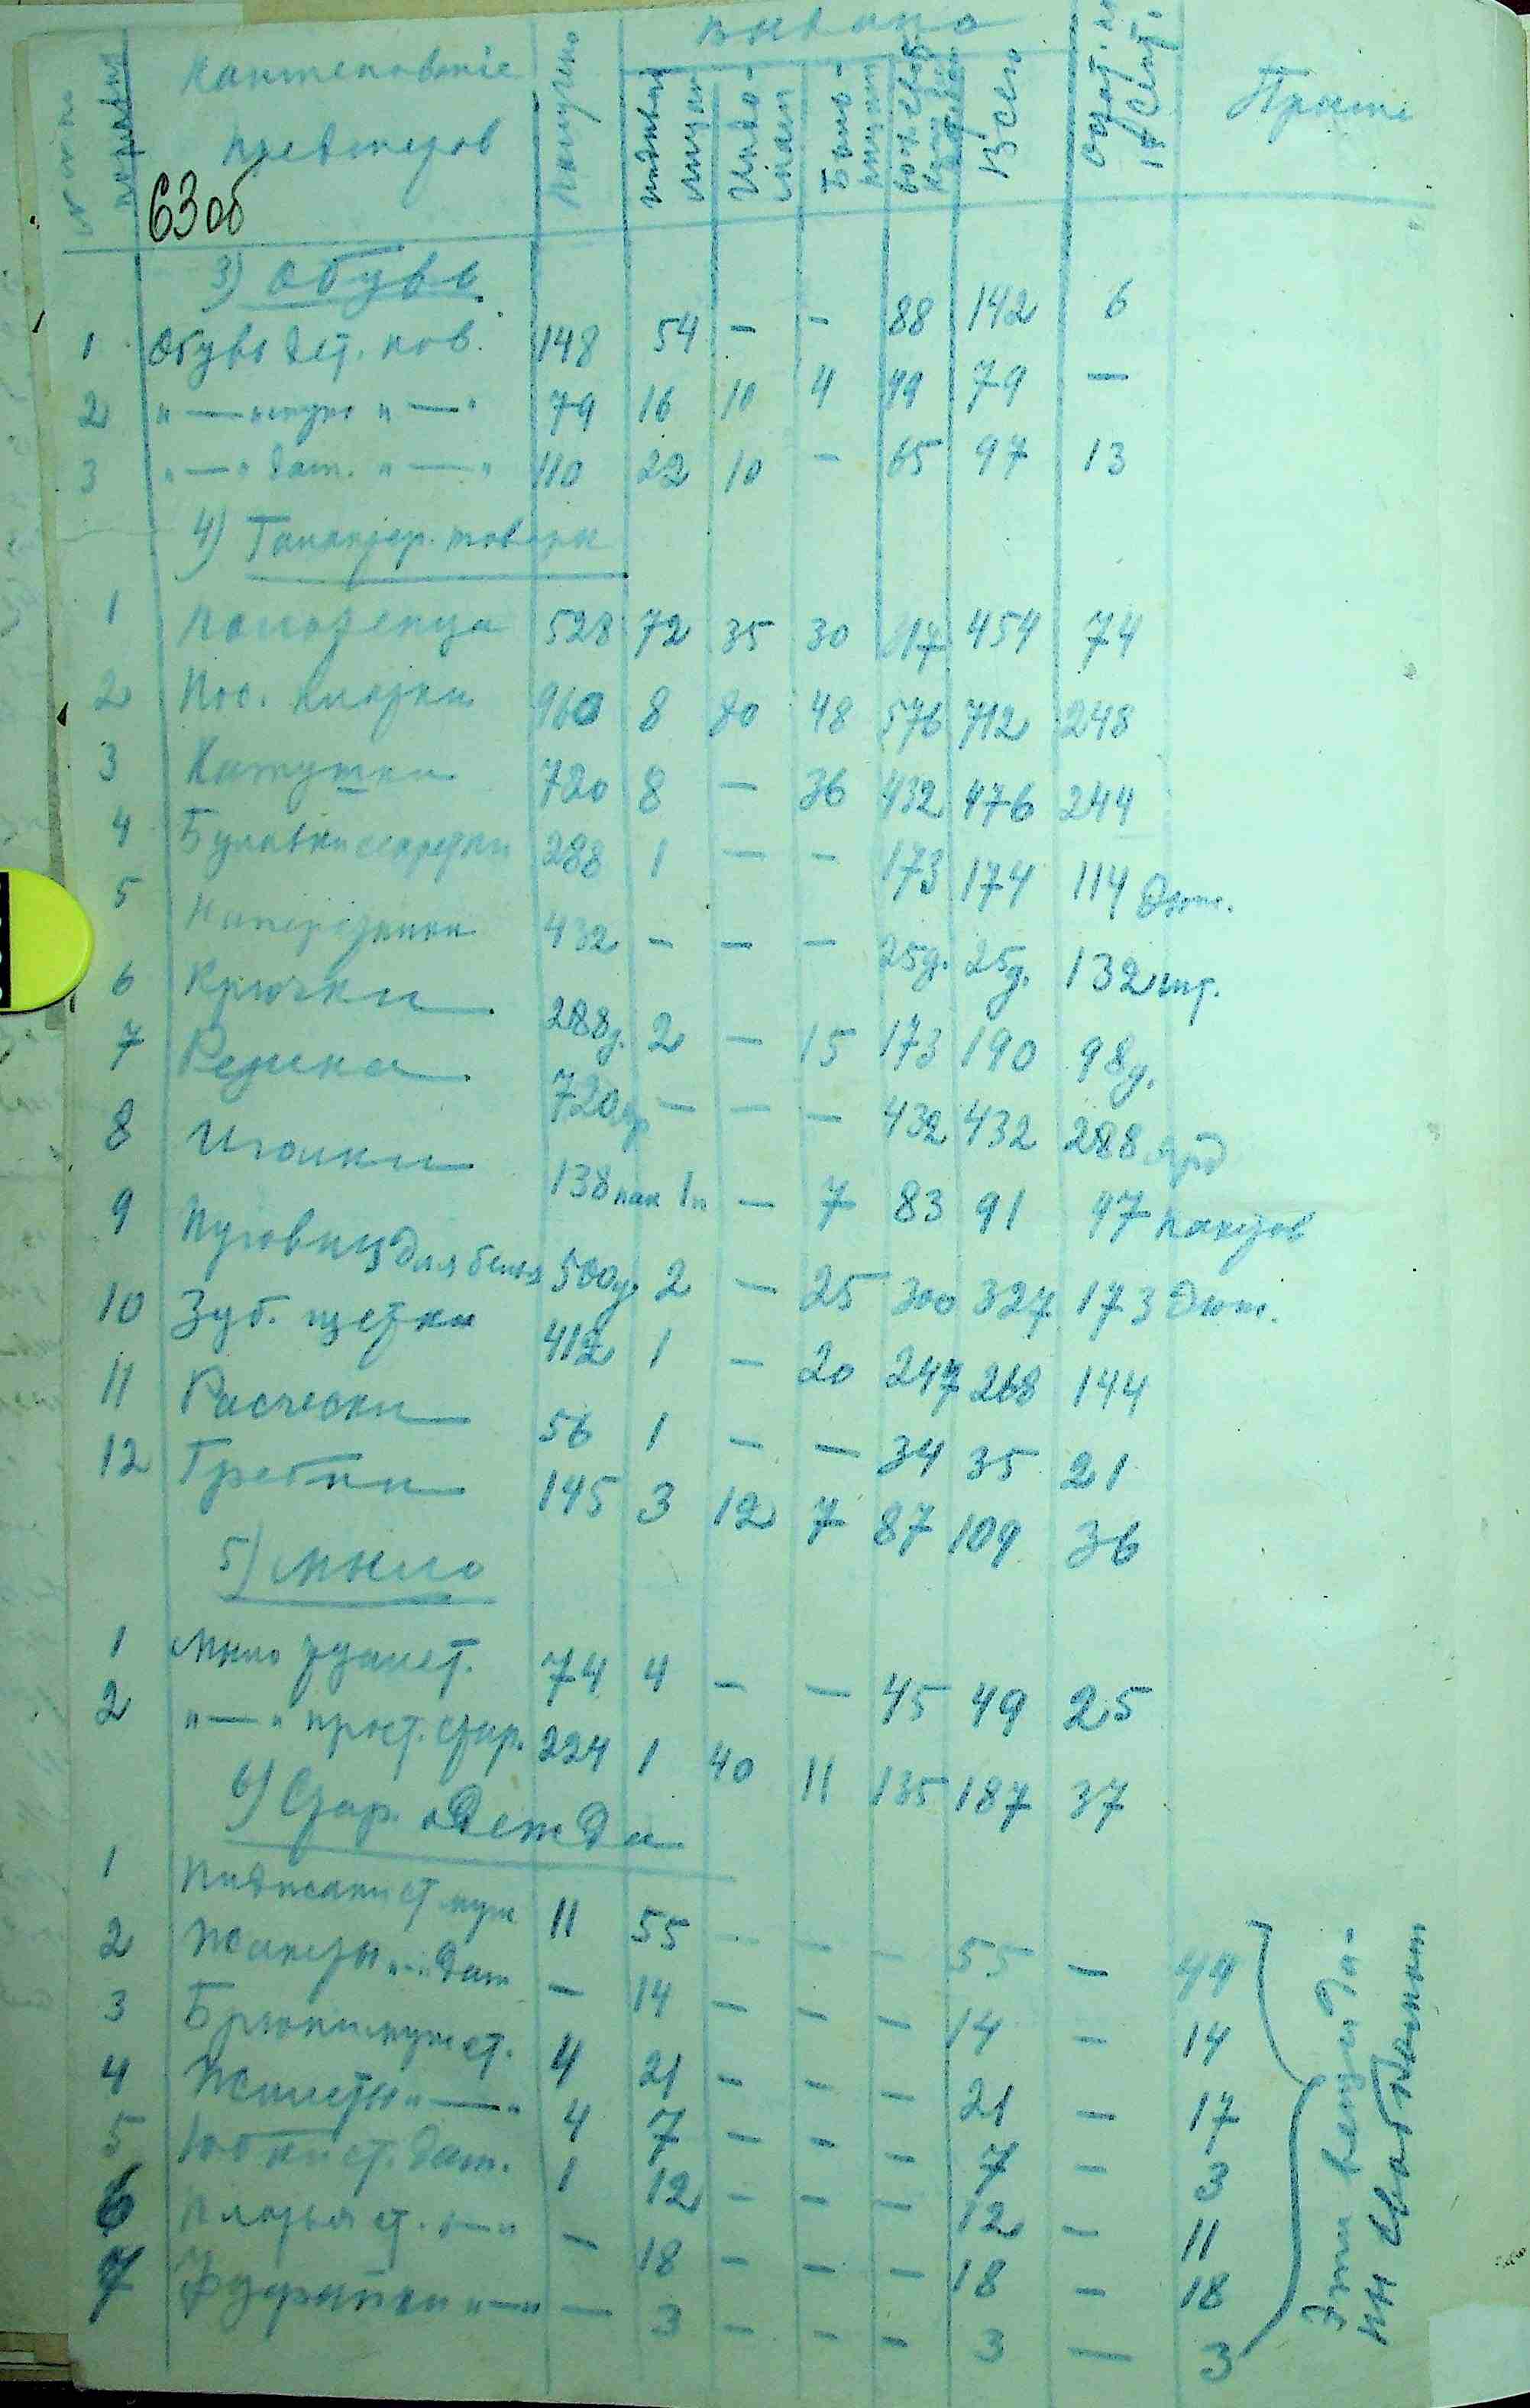 Наименование предметов Получено Выдано Всего Остат. на 1 Сент. Прим
63об
3) Обувь
1 Обувь дет. нов. 148 54 — — 88 142 6
2 „—„ муж „—„ 79 16 10 4 49 79 —
3 „—„ дам. „—„ 110 22 10 — 65 97 13
4) Галантер. товары
1 Полотенца 528 72 35 30 317 454 74
2 Нос. платки 960 8 80 48 576 712 248
3 Катушки 720 8 — 36 432 476 244
4 Булавки секретки 288 1 — — 173 174 114 дюж.
5 Наперстки 432 — — — 25д. 25д. 132 шт.
6 Крючки 288д. 2 — 15 173 190 98д.
7 Резинка 720 яр — — — 432 432 288 ярд
8 Иголки 138 пак 1п — 7 83 91 47 пакетов
9 Пуговиц для белья 500д 2 — 25 300 327 173 дюж.
10 Зуб. щетки 412 1 — 20 247 268 144
11 Расчески 56 1 — — 34 35 21
12 Гребни 145 3 12 7 87 109 36
5) Мыло
1 Мыло туалет. 74 4 — — 45 49 25
2 „—„ прост. стир. 224 1 40 11 135 187 37
6) Стар. одежда
1 Пиджаки ст муж 11 55 — — — 55 — 44
2 Жакеты „—„ дам — 14 — — — 14 — 14
3 Брюки муж ст. 4 21 — — — 21 — 17
4 Жилеты „—„ 4 7 — — — 7 — 3
5 Юбки ст. дам. 1 12 — — — 12 — 11
6 Платья ст. „—„ — 18 — — — 18 — 18
7 Фуфайки „—„ — 3 — — — 3 — 3
Эти вещи